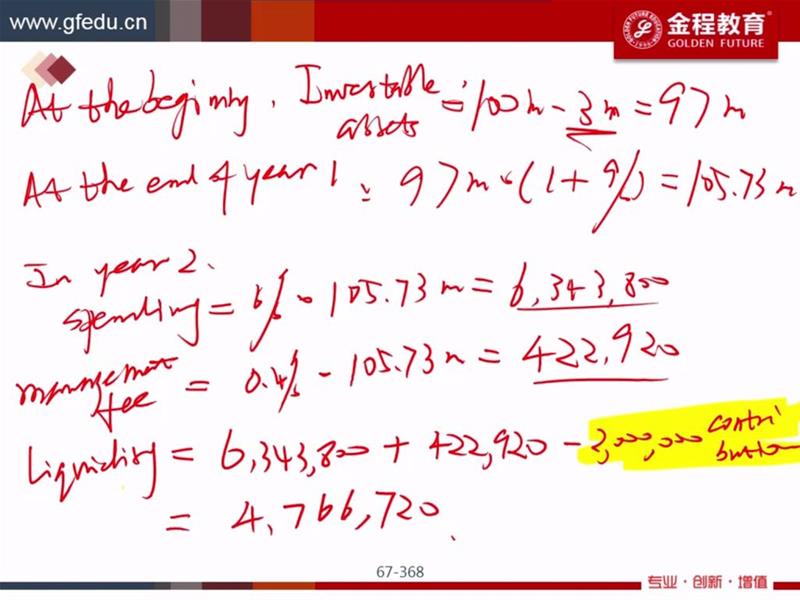 www.gfedu.cn
金程教育
GOLDEN FUTURE
At the beginning, Investable assets = 100m - 3m = 97m
At the end of year 1 = 97m · (1 + 9%) = 105.73m
In year 2.
spending = 6% · 105.73m = 6,343,800
management fee = 0.4% · 105.73m = 422,920
Liquidity = 6,343,800 + 422,920 - 2,000,000 contribution
= 4,766,720.
67-368
专业·创新·增值